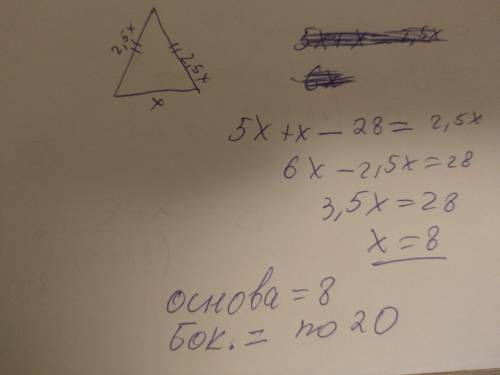 2,5x
2,5x
x
5x+x=2,5x
6x
5x+x-28=2,5x
6x-2,5x=28
3,5x=28
x=8
основа=8
бок.= по 20